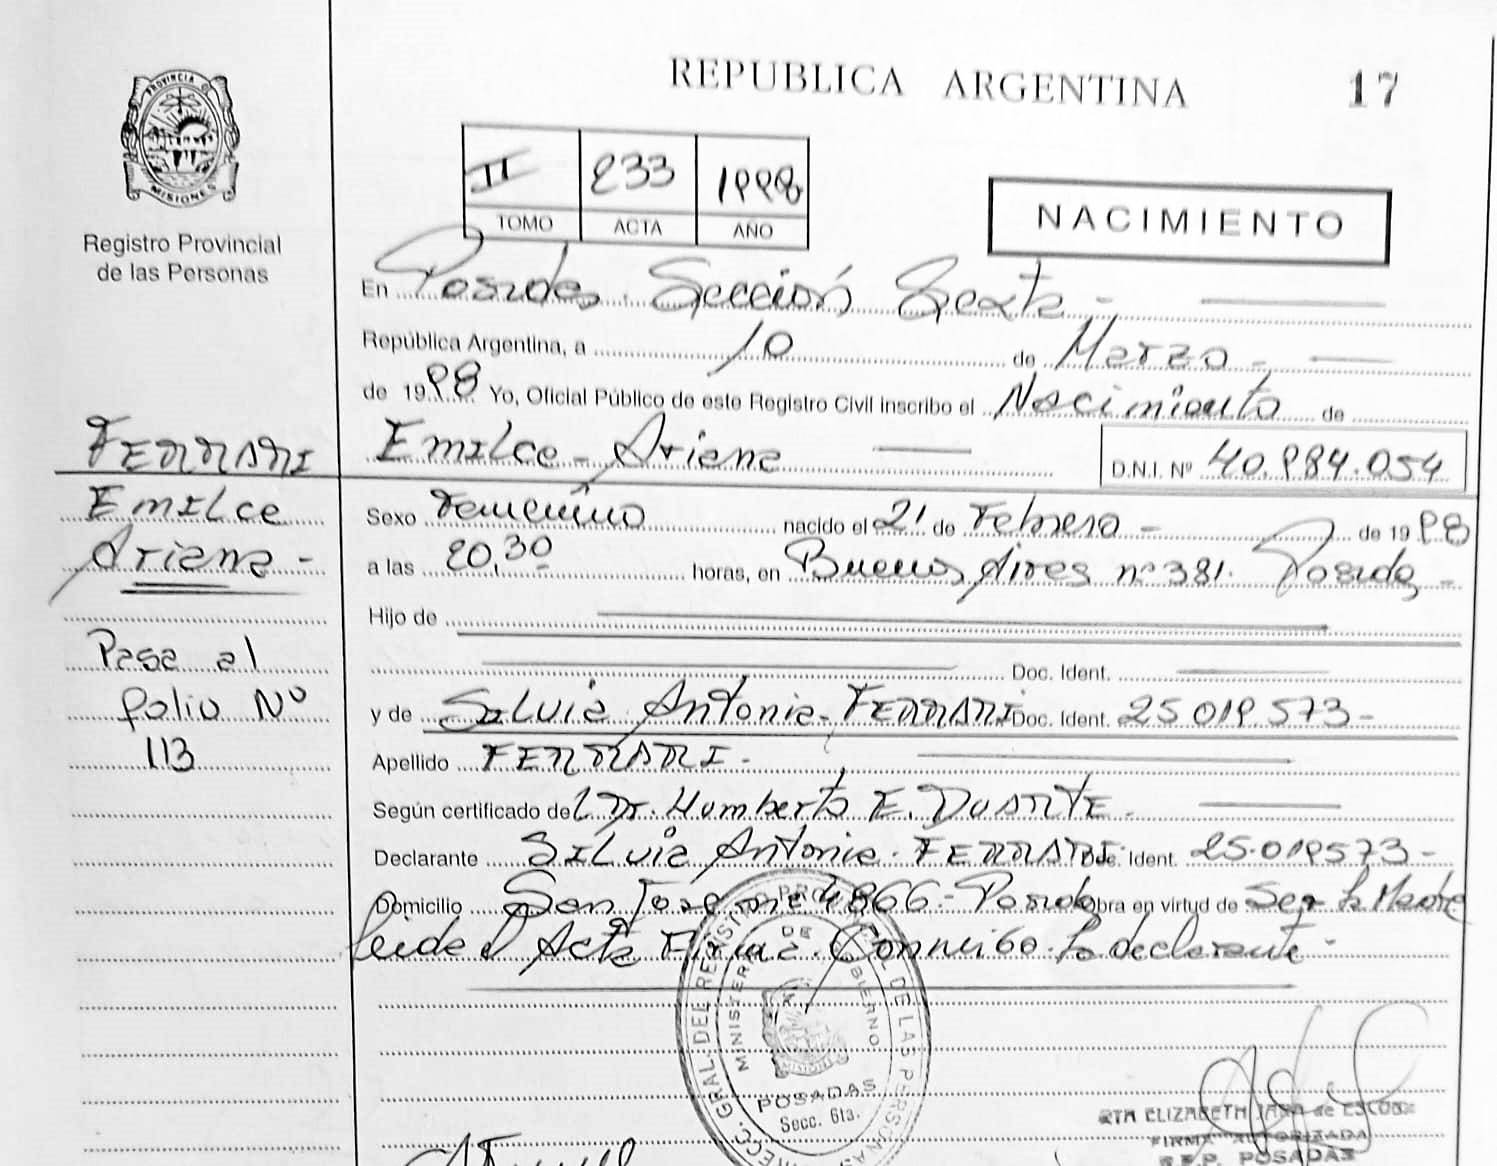 REPUBLICA ARGENTINA 17
PROVINCIA DE
MISIONES
Registro Provincial
de las Personas
II 233 1998
TOMO ACTA AÑO
NACIMIENTO
En Posadas. Sección Sexta -
República Argentina, a 10 de Marzo -
de 1998 Yo, Oficial Público de este Registro Civil inscribo el Nacimiento de
FERRARI Emilce - Ariana D.N.I. Nº 40.984.054
Emilce Sexo Femenino nacido el 21 de Febrero - de 1998
Ariana - a las 20,30 horas, en Buenos Aires nº 381. Posadas -
Hijo de
Doc. Ident.
Pasa al
folio Nº y de Silvia Antonia - FERRARI Doc. Ident. 25019573 -
113 Apellido FERRARI -
Según certificado del Dr. Humberto E. DUARTE -
Declarante Silvia Antonia - FERRARI Doc. Ident. 25.019573 -
Domicilio San José 4866 - Posadas Obra en virtud de Ser la Madre
Leida el Acta Firma Conmigo la declarante -
GRAL. DEL REGISTRO DE LAS PERSONAS
MINISTERIO DE GOBIERNO
POSADAS
Secc. 6ta.
ELIZABETH de
FIRMA AUTORIZADA
R.P.P. POSADAS